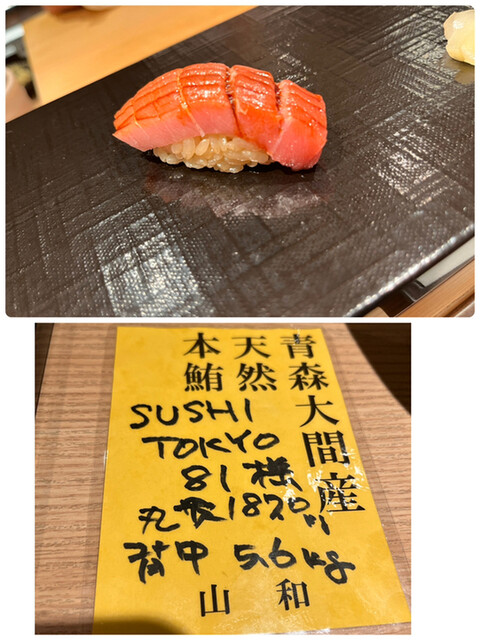 青森大間産
天然
本鮪
SUSHI
TOKYO
81様
丸 182
背中 5.6kg
山和